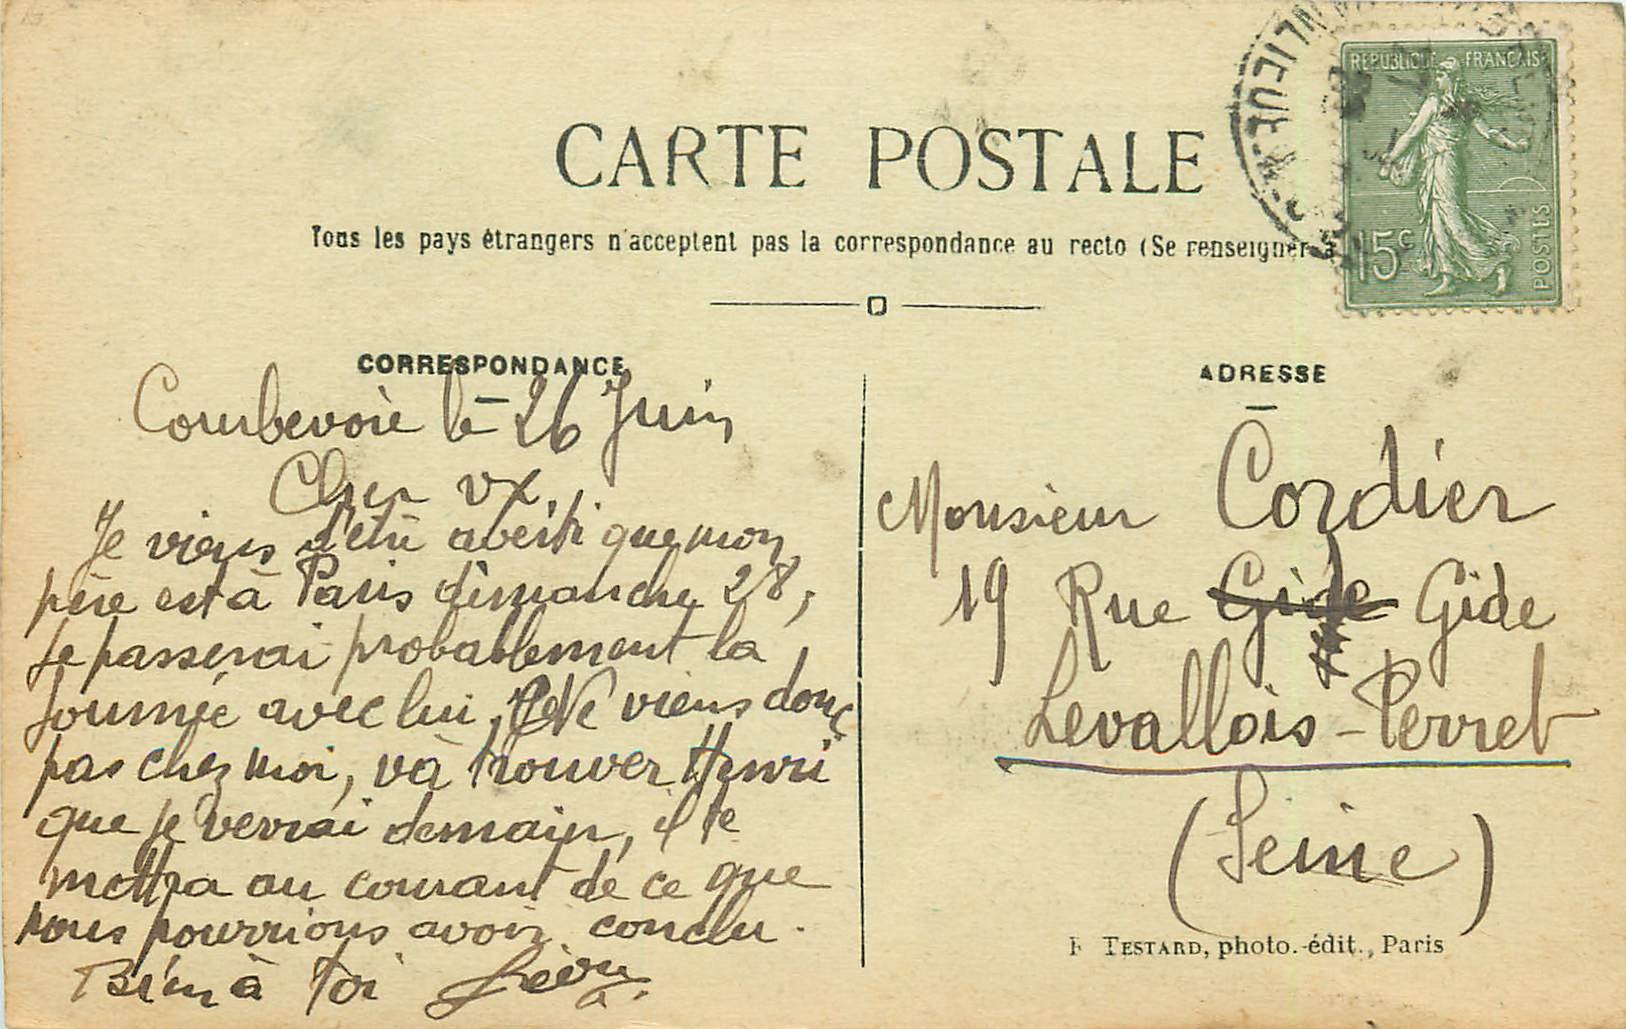 CARTE POSTALE
Tous les pays étrangers n'acceptent pas la correspondance au recto (Se renseigner à
REPUBLIQUE FRANCAISE
15c
POSTES
CORRESPONDANCE
Courbevoie le 26 Juin
Cher vx,
Je viens d'être averti que mon
père est à Paris dimanche 28,
je passerai probablement la
journée avec lui, Ne viens donc
pas chez moi, và trouver Henri
que je verrai demain, il te
mettra au courant de ce que
nous pourrions avoir conclu.
Bien à toi
ADRESSE
Monsieur Cordier
19 Rue Gide Gide
Levallois-Perret
(Seine)
TESTARD, photo.-édit., Paris